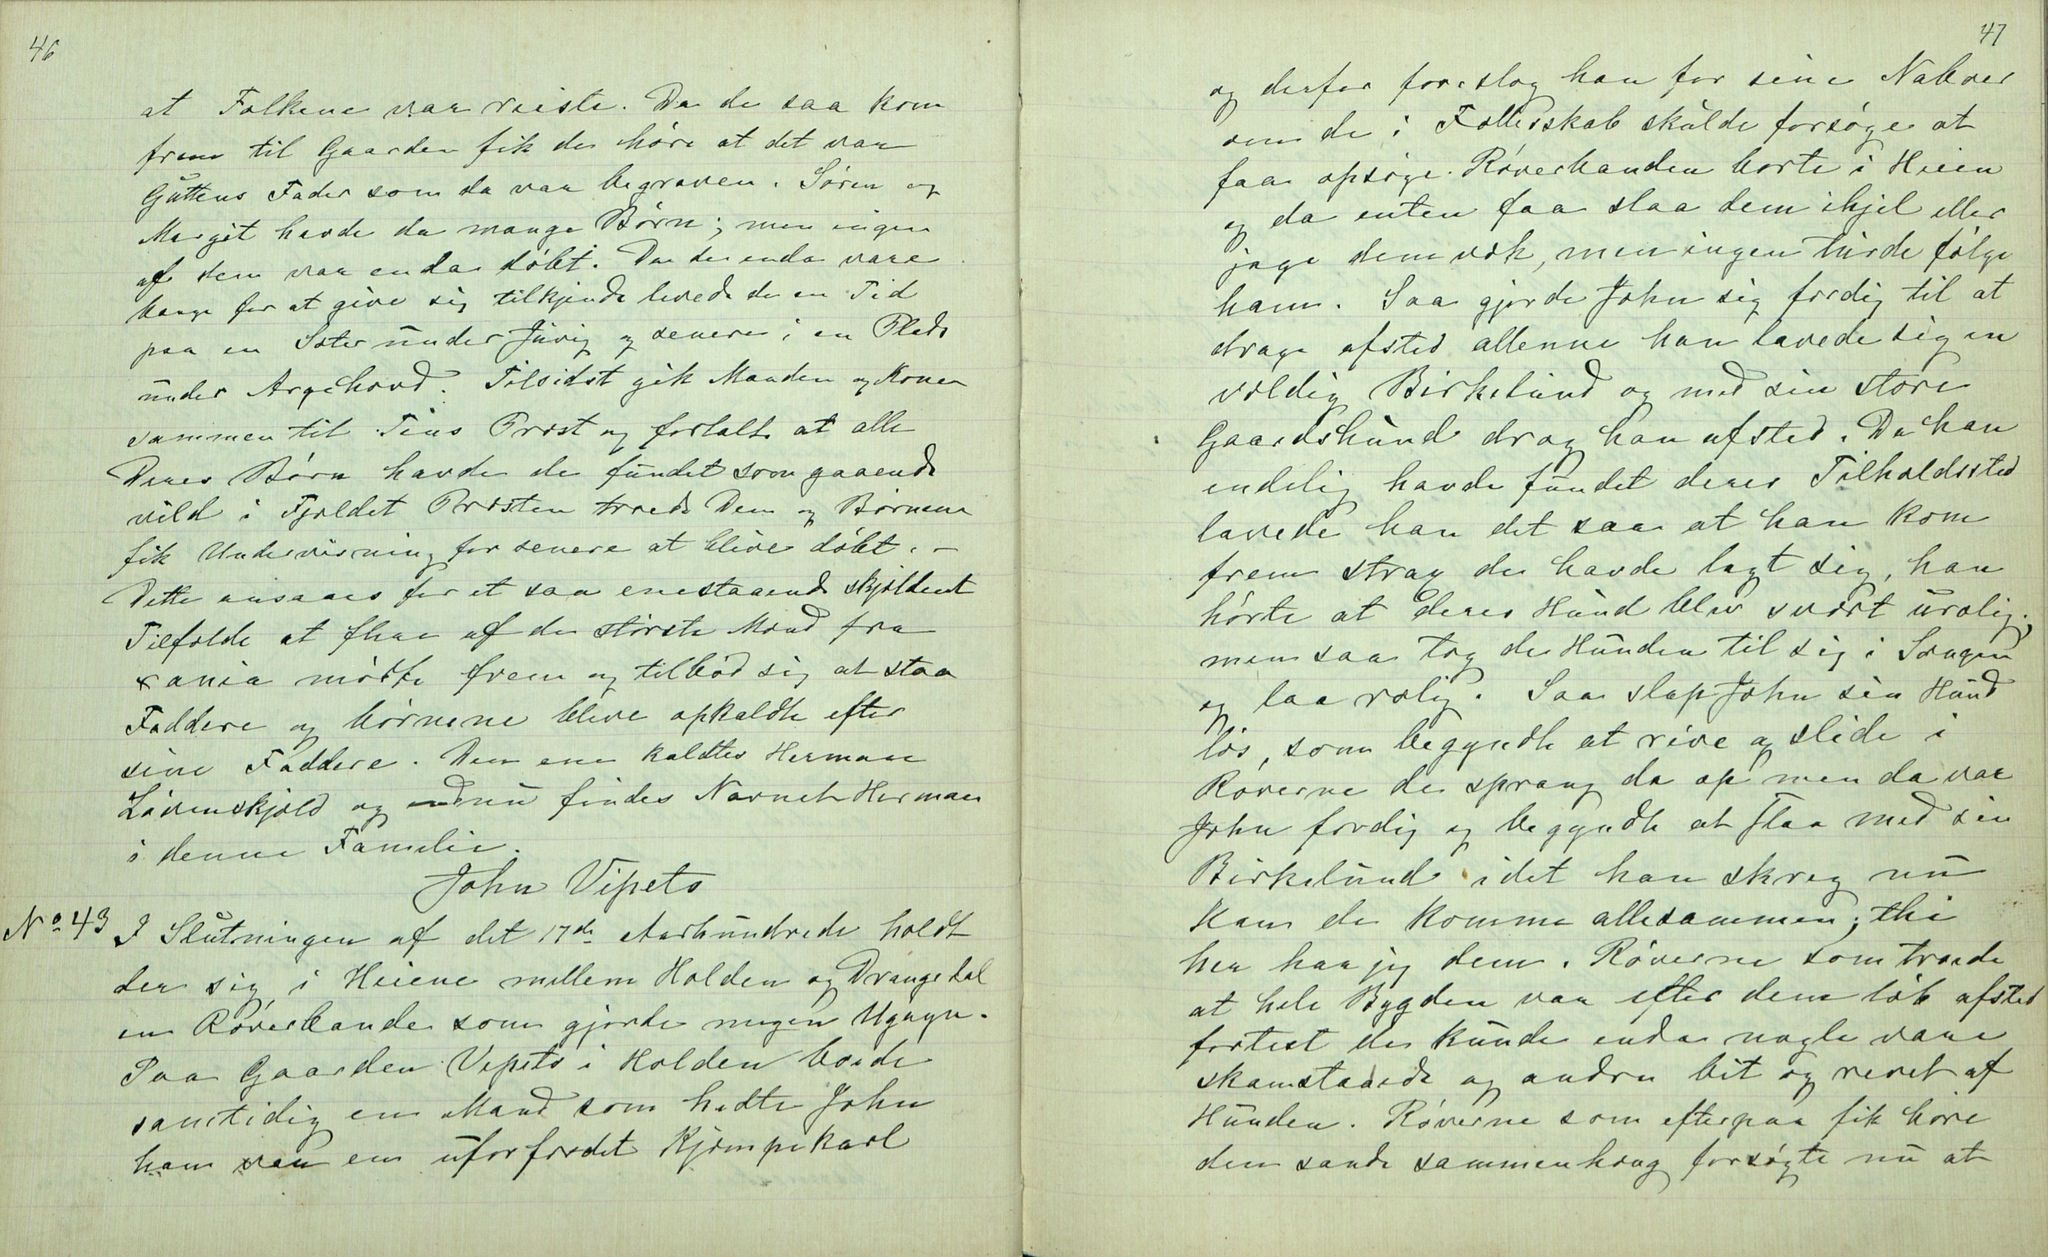 46
at Folkene var reiste. Da de saa kom
frem til Gaarden fik de høre at det var
Guttens Fader som da var begraven. Søren og
Margit havde da mange Børn; men ingen
af dem var enda døbt. Da de enda vare
bange for at give sig tilkjende levede de en Tid
paa en Sæter under Juvig og senere i en Plads
under Argehovd. Tilsidst gik Manden og Konen
sammen til Tins Præst og fortalte at alle
Deres Børn havde de fundet som gaaende
vild i Fjeldet Præsten troede Dem og Børnene
fik Undervisning for senere at blive døbt. –
Dette ansaaes for et saa enestaaende skjeldent
Tilfælde at flere af de største Mænd fra
møtte frem og tilbød sig at staa
Faddere og børnene bleve opkaldte efter
sine Faddere. Den ene kaldtes Herman
Løvenskjold og endnu findes Navnet Herman
i denne Familie.
John Vipeto
No 43 I Slutningen af det 17de Aarhundrede holdt
der sig i Heiene mellem Holden og Drangedal
en Røverbande som gjorde megen Ugagn.
Paa Gaarden Vipeto i Holden boede
samtidig en Mand som hedte John
han var en uforfærdet Kjæmpekarl
47
og derfor foreslog han for sine Naboer
om de i Fællesskab skulde forsøge at
faa opsøge Røverbanden borte i Heien
og da enten faa slaa dem ihjel eller
jage dem væk, men ingen turde følge
ham. Saa gjorde John sig færdig til at
drage afsted allenne han lavede sig en
vældig Birkelund og med sin store
Gaardshund drog han afsted. Da han
endelig havde fundet deres Tilholdssted
lavede han det saa at han kom
frem strax de havde lagt sig, han
hørte at deres Hund blev svært urolig;
men saa tog de Hunden til sig i Sengen
og laa rolig. Saa slap John sin Hund
løs, som begyndte at rive og slide i
Røverne de sprang da op men da var
John færdig og begyndte at slaa med sin
Birkelund idet han skreg nu
kan de komme allesammen; thi
her har jeg dem. Røverne som troede
at hele Bygden var efter dem løb afsted
fortest de kunde enda nogle vare
skamslaaede og andre bit og revet af
Hunden. Røverne som efterpaa fik høre
den sande sammenhæng forsøgte nu at